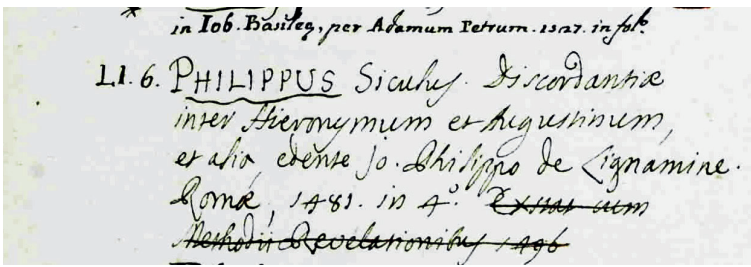 in Iob. Basileę, per Adamum Petrum. 1527. in fol.
LI. 6. PHILIPPUS Siculus. Discordantiæ
inter Hieronymum et Augustinum,
et alia, edente Jo. Philippo de Lignamine.
Romæ, 1481. in 4°. Extat cum
Methodii Revelationibus 1496